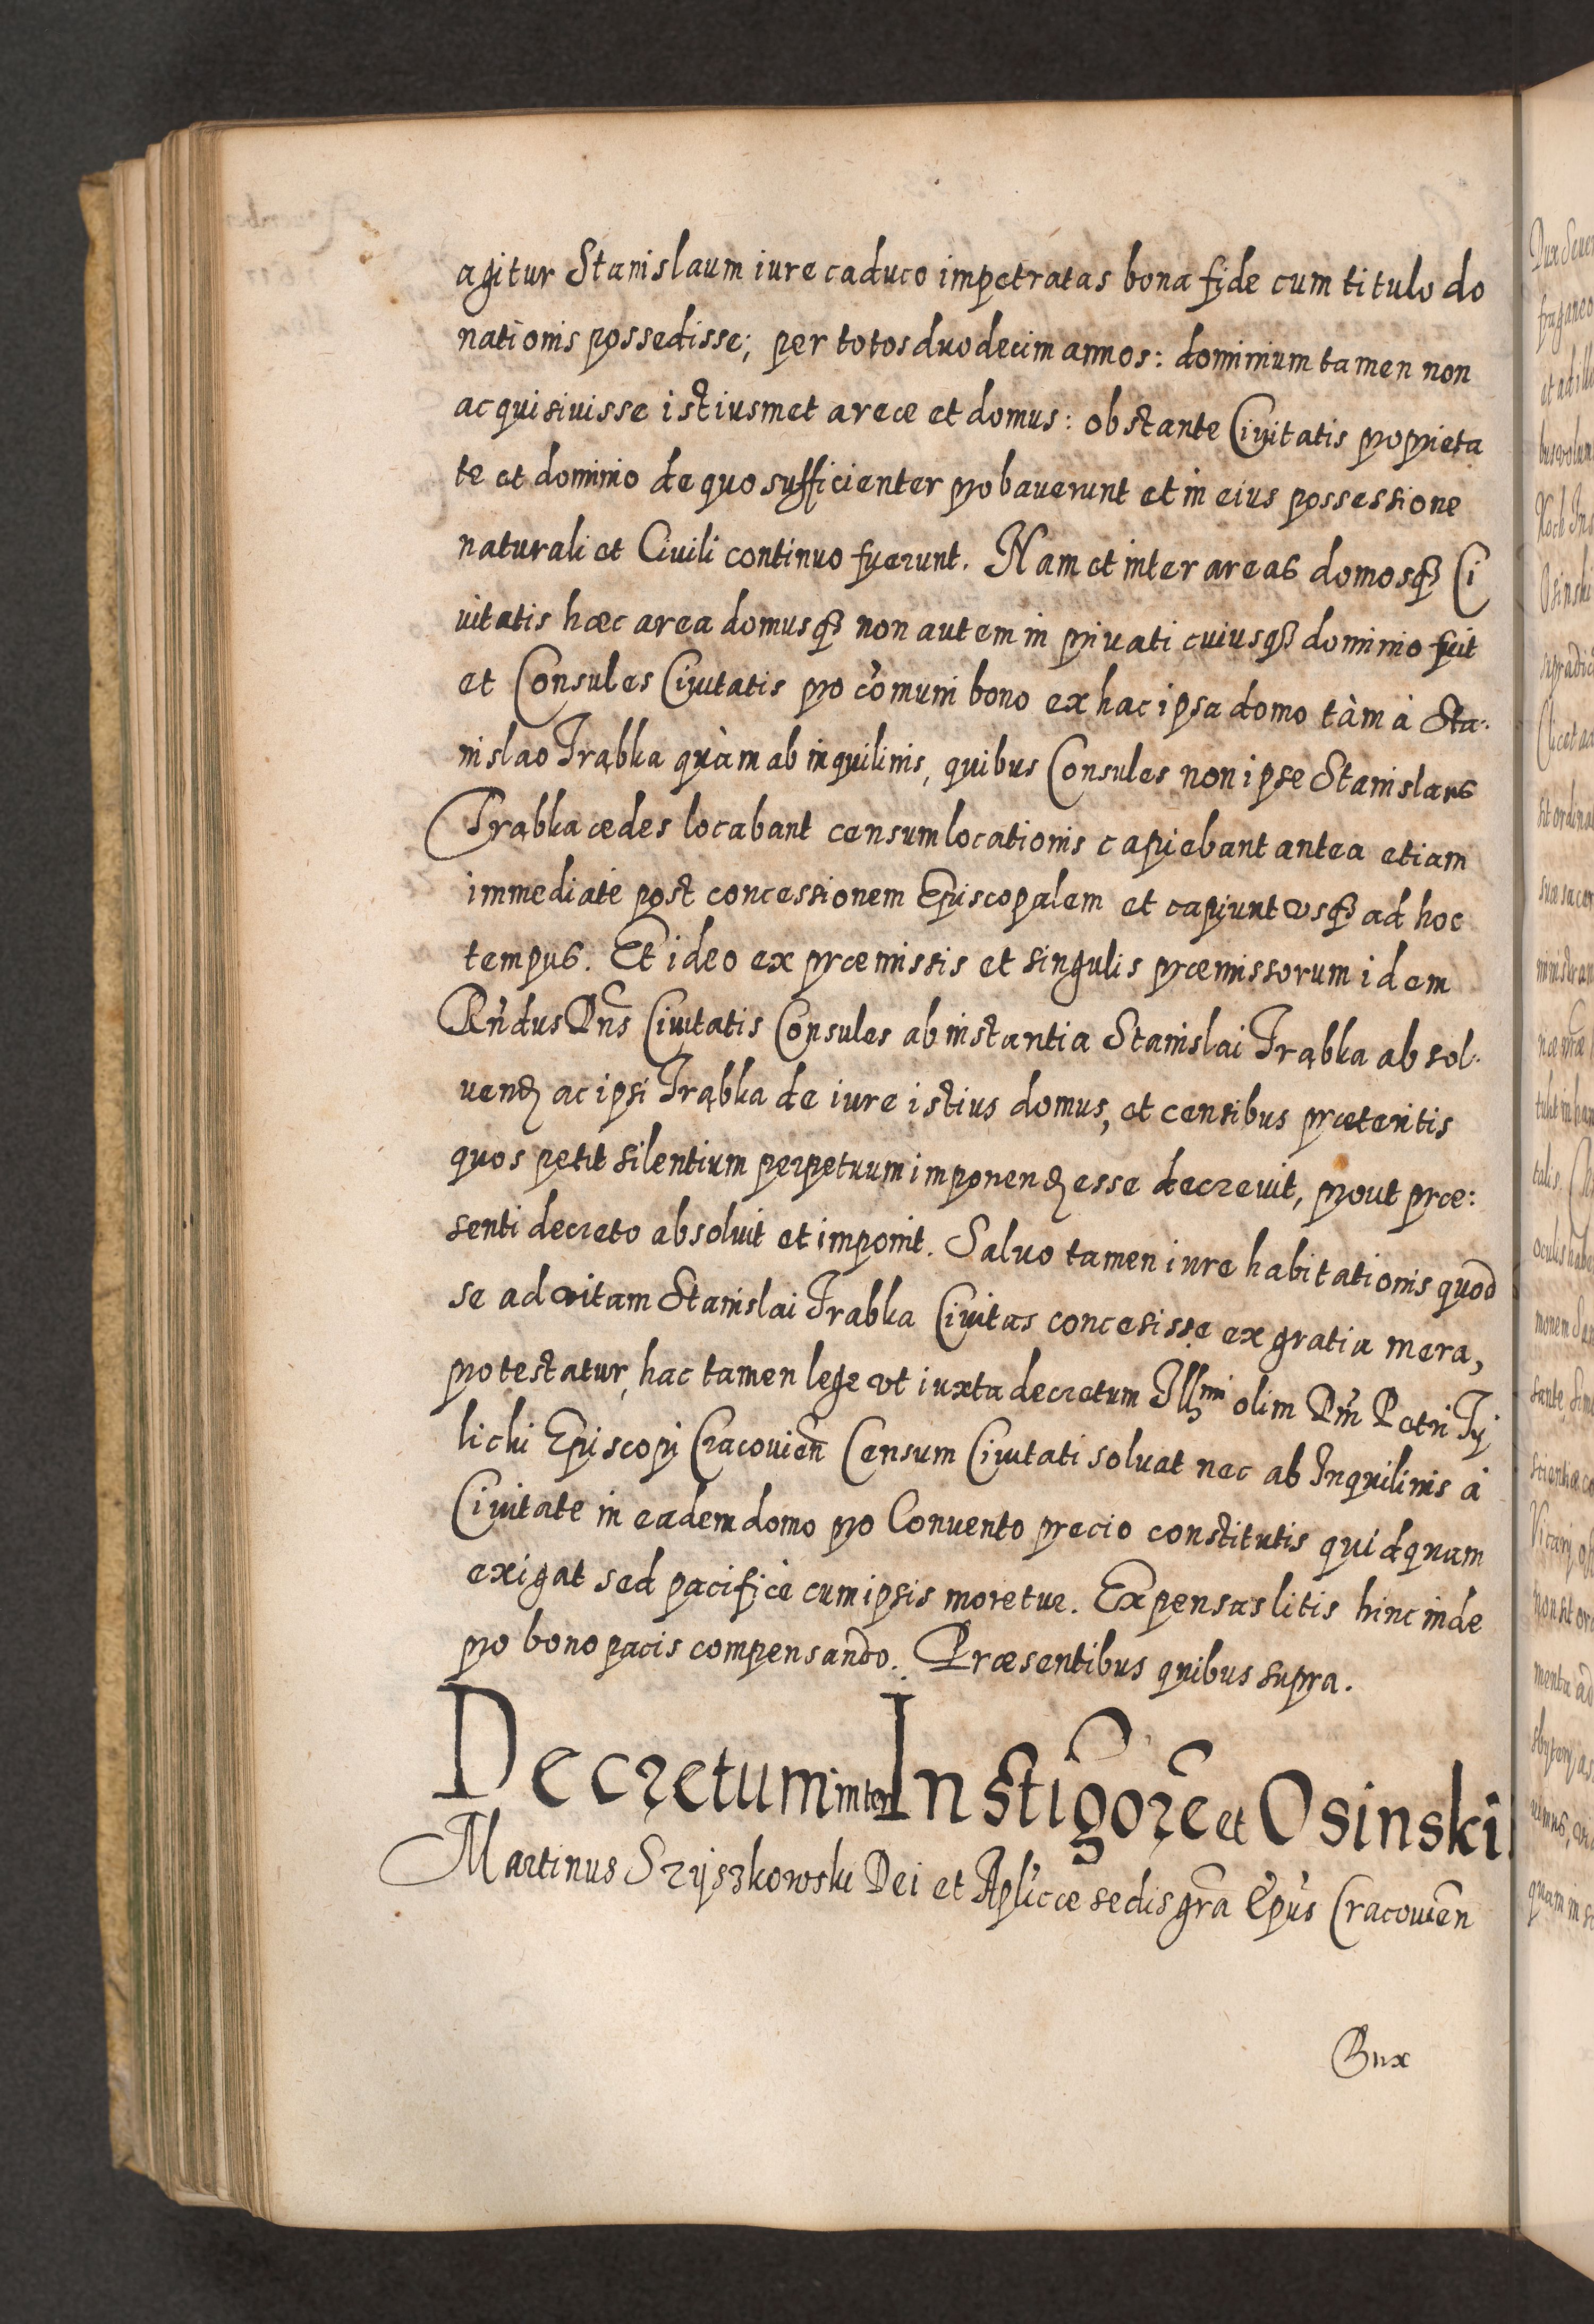 agitur Stanislaum iure caduco impetratas bona fide cum titulo do
nationis possedisse; per totos duodecim annos: dominium tamen non
acquisiuisse istiusmet areæ et domus: obstante Ciuitatis proprieta
te et dominio de quo sufficienter probauerunt et in eius possessione
naturali et Ciuili continuo fuerunt. Nam et inter areas domosq́ꝫ Ci
uitatis hæc area domusqꝫ non autem in priuati cuiusqꝫ dominio fuit
et Consules Ciuitatis pro cōmuni bono ex hac ipsa domo tàm à Sta-
nislao Trąbka quàm ab inquilinis, quibus Consules non ipse Stanislaus
Trąbka ædes locabant censum locationis capiebant antea etiam
immediatè post concessionem Episcopalem et capiunt vsqꝫ ad hoc
tempus. Et ideo ex præmissis et singulis præmissorum idem
Rñdus Dñs Ciuitatis Consules ab instantia Stanislai Trąbka absol-
uend ac ipsi Trąbka de iure istius domus, et censibus præteritis
quos petit silentium perpetuum imponend esse decreuit, prout præ:
senti decreto absoluit et imponit. Saluo tamen iure habitationis quod
se ad vitam Stanislai Trabka Ciuitas concesisse ex gratia mera,
protestatur, hac tamen lege vt iuxta decretum Illmi olim Dñi Petri Ty
licki Episcopi Cracouień Censum Ciuitati soluat nec ab Inquilinis à
Ciuitate in eadem domo pro Conuento precio constitutis quidquam
exigat sed pacificè cum ipsis moretur. Expensas litis hinc inde
pro bono pacis compensando. Præsentibus quibus supra.
Decretum inter Instigorē et Osinski
Martinus Szyszkowski Dei et Aplicæ sedis grā Epus Cracouień